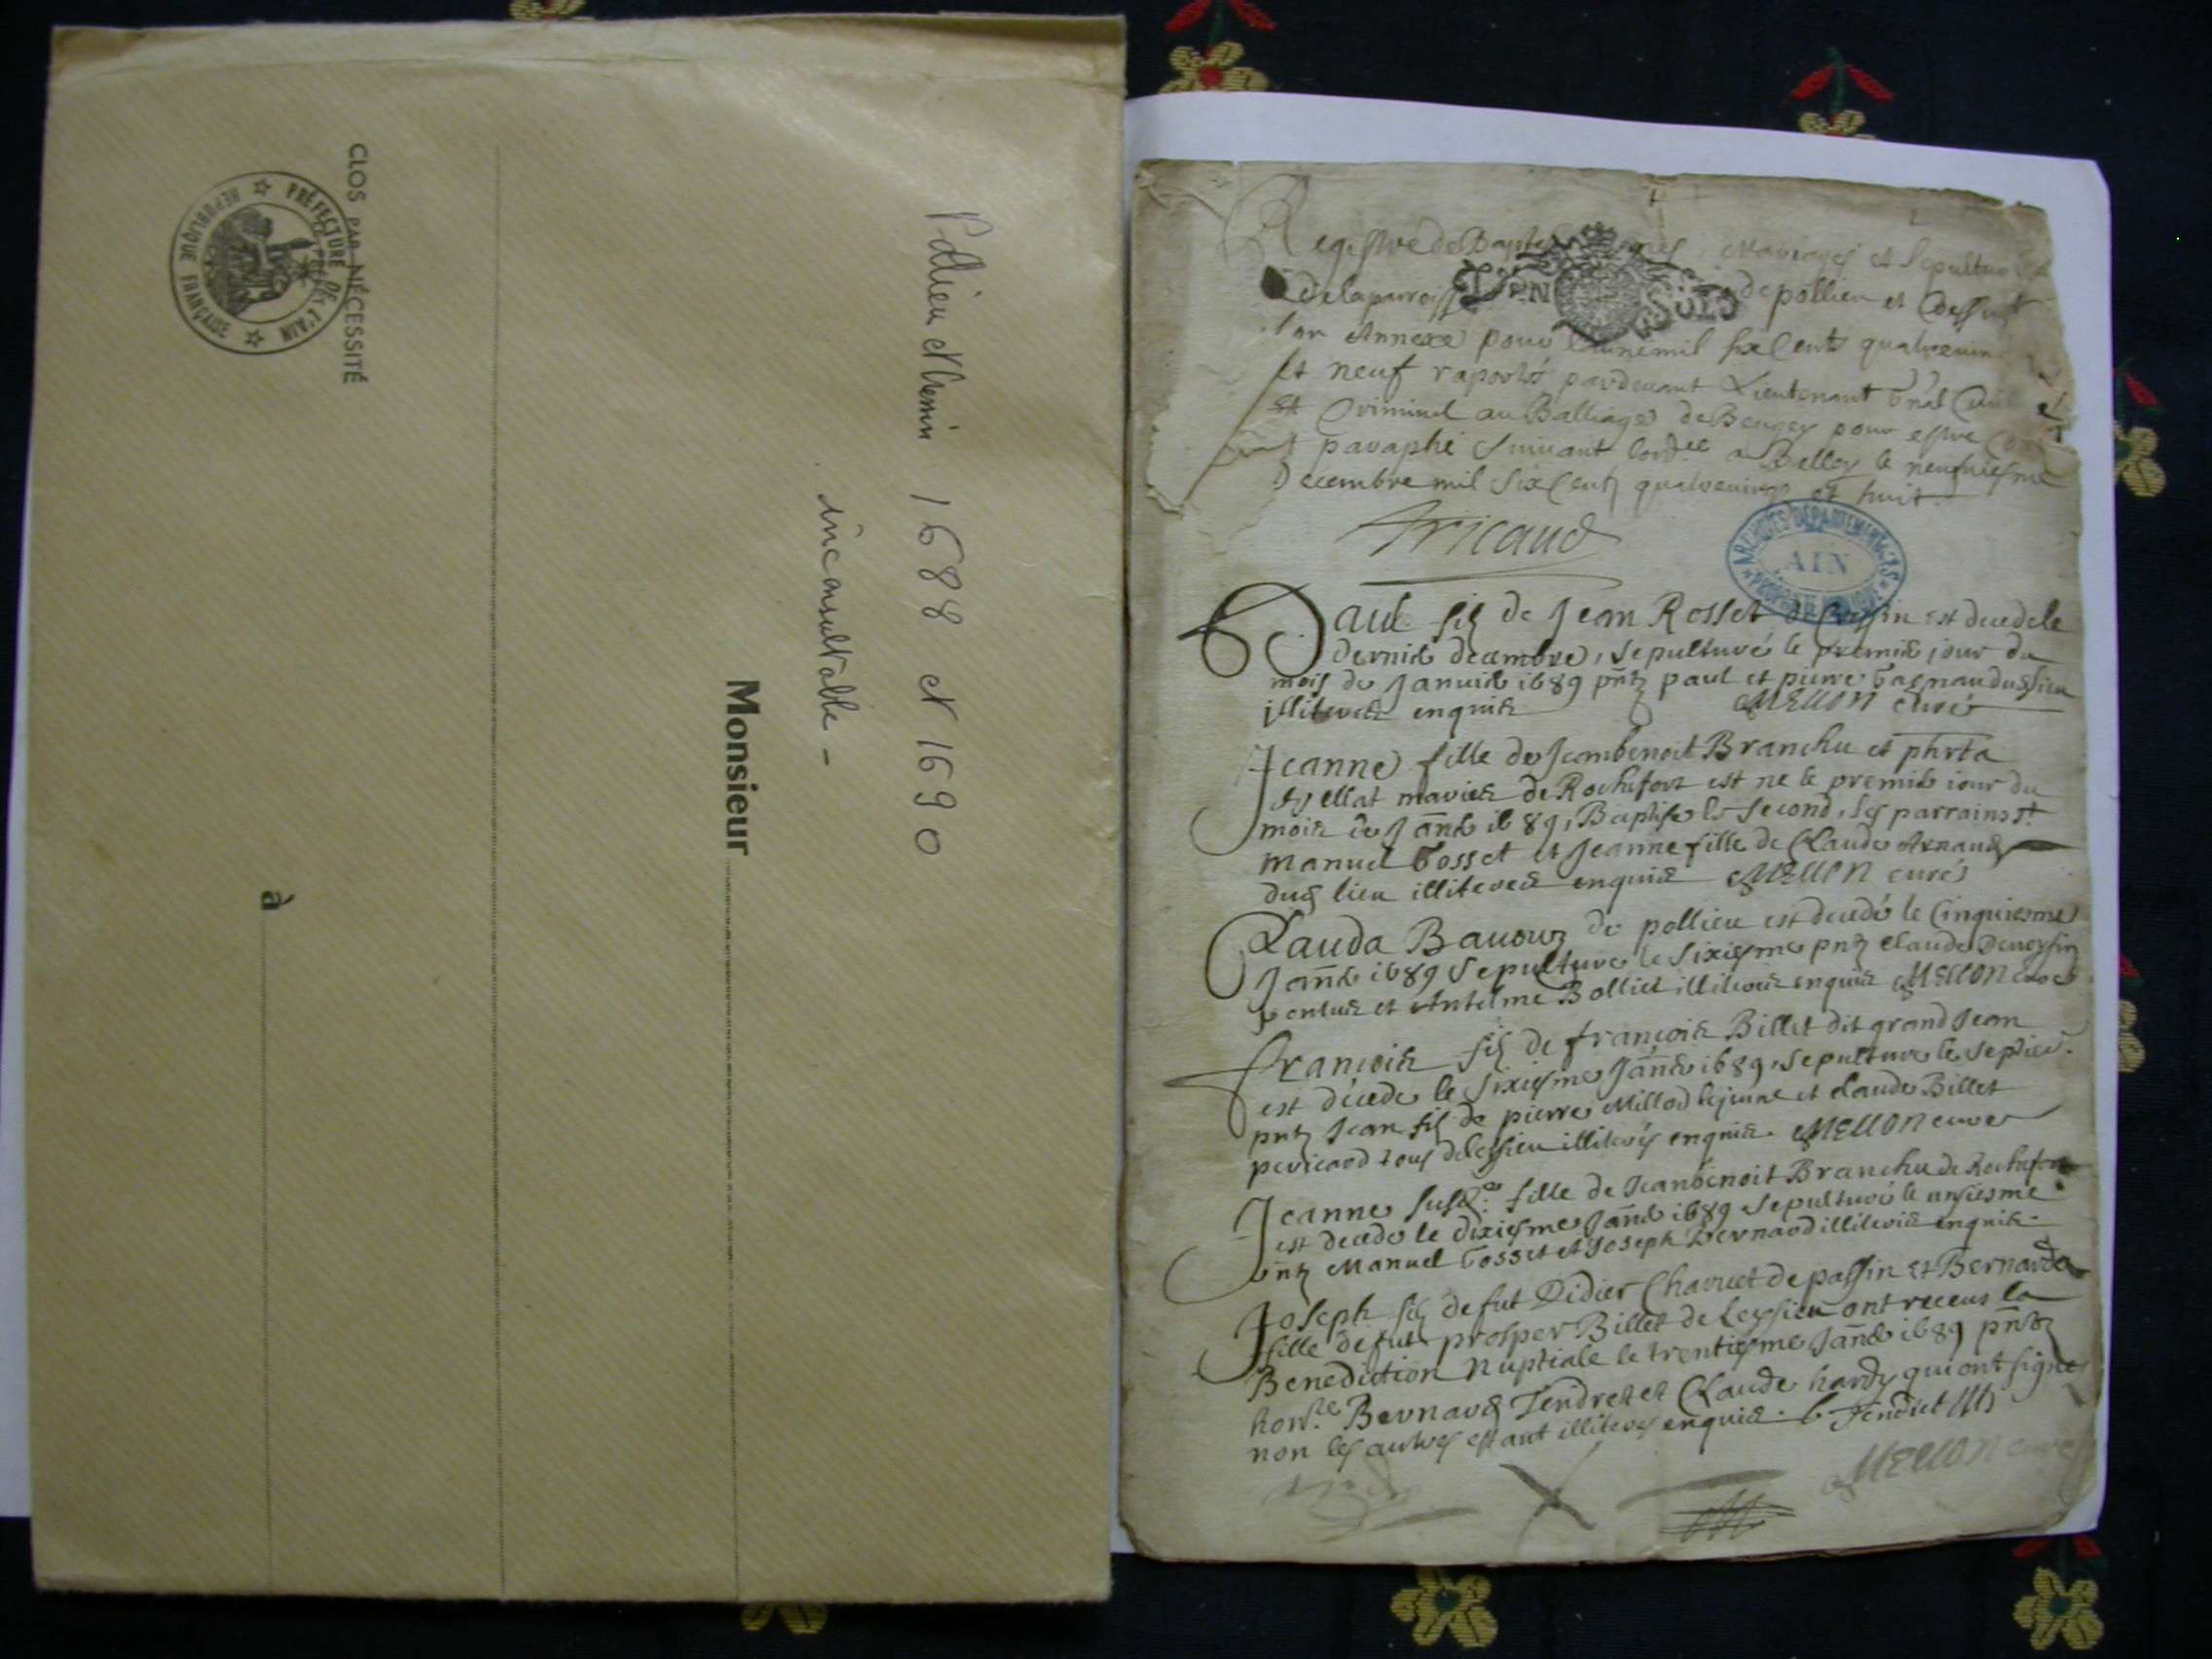 CLOS PAR NÉCESSITÉ
PRÉFECTURE DE L'AIN
RÉPUBLIQUE FRANÇAISE
Pollieu et Cressin 1688 et 1690
inconsultable -
Monsieur
à
Registre des Baptesmes, Mariages et Sepultur
de la parroisse de pollieu et Cressin
VN SOLS
son Annexe pour l'année mil six Cents quatrevin
et neuf raporté pardevant Lieutenant Gnal Civil
et Criminel au Balliage de Beugey pour estre
paraphé suivant lordce a Belley le neufviesme
Decembre mil six Cents quatrevingt et huit.
Tricaud
ARCHIVES DÉPARTEMENTALES
AIN
Paul fils de Jean Rosset de Cressin est decede le
dernier decembre, sepulturé le premier jour du
mois de Janvier 1689 pnts paul et pierre dud lieu
illiteres enquis MELLON curé
Jeanne fille de Jeanbenoit Branchu et
mariés de Rochefort est ne le premier iour du
mois de Janr 1689, Baptisée le second, les parrains st
Manuel Gosset et Jeanne fille de Claude Arnaud
dud lieu illiteres enquis MELLON curé
Clauda Bavouz de pollieu est decedé le Cinquiesme
Janr 1689 Sepulture le sixiesme pnts Claude
et Antelme Bolliet illiteres enquis MELLON curé
françois fils de françois Billet dit grand Jean
est decede le sixiesme Janr 1689, sepulture le septie.
pnts Jean fils de pierre Millod lejeune et Claude Billet
pericaod tous de Lessieu illiterés enquis. MELLON curé
Jeanne susd. fille de Jeanbenoit Branchu de Rochefort
est decede le dixiesme Janr 1689 sepulturé le unziesme
pnts Manuel Gosset et Joseph Bernaod illiteres enquis.
Joseph fils de fut Didier Charvet de passin et Bernarda
fille de fut prosper Billet de Leyssieu ont receus la
Benediction Nuptiale le trentiesme Janr 1689 pnts
honble Bernard Tendret et Claude hardy qui ont signe
non les autres estant illiteres enquis. b. Tendret
MELLON curé